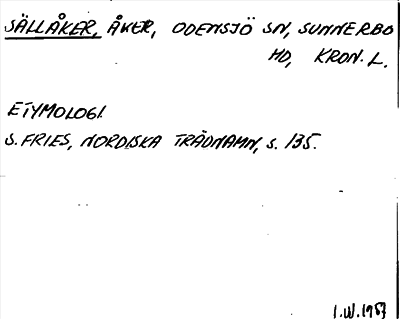 SÄLLÅKER, ÅKER, ODENSJÖ SN, SUNNERBO
HD, KRON. L.
ETYMOLOGI
S. FRIES, NORDISKA TRÄDNAMN, S. 135.
I.W. 1987